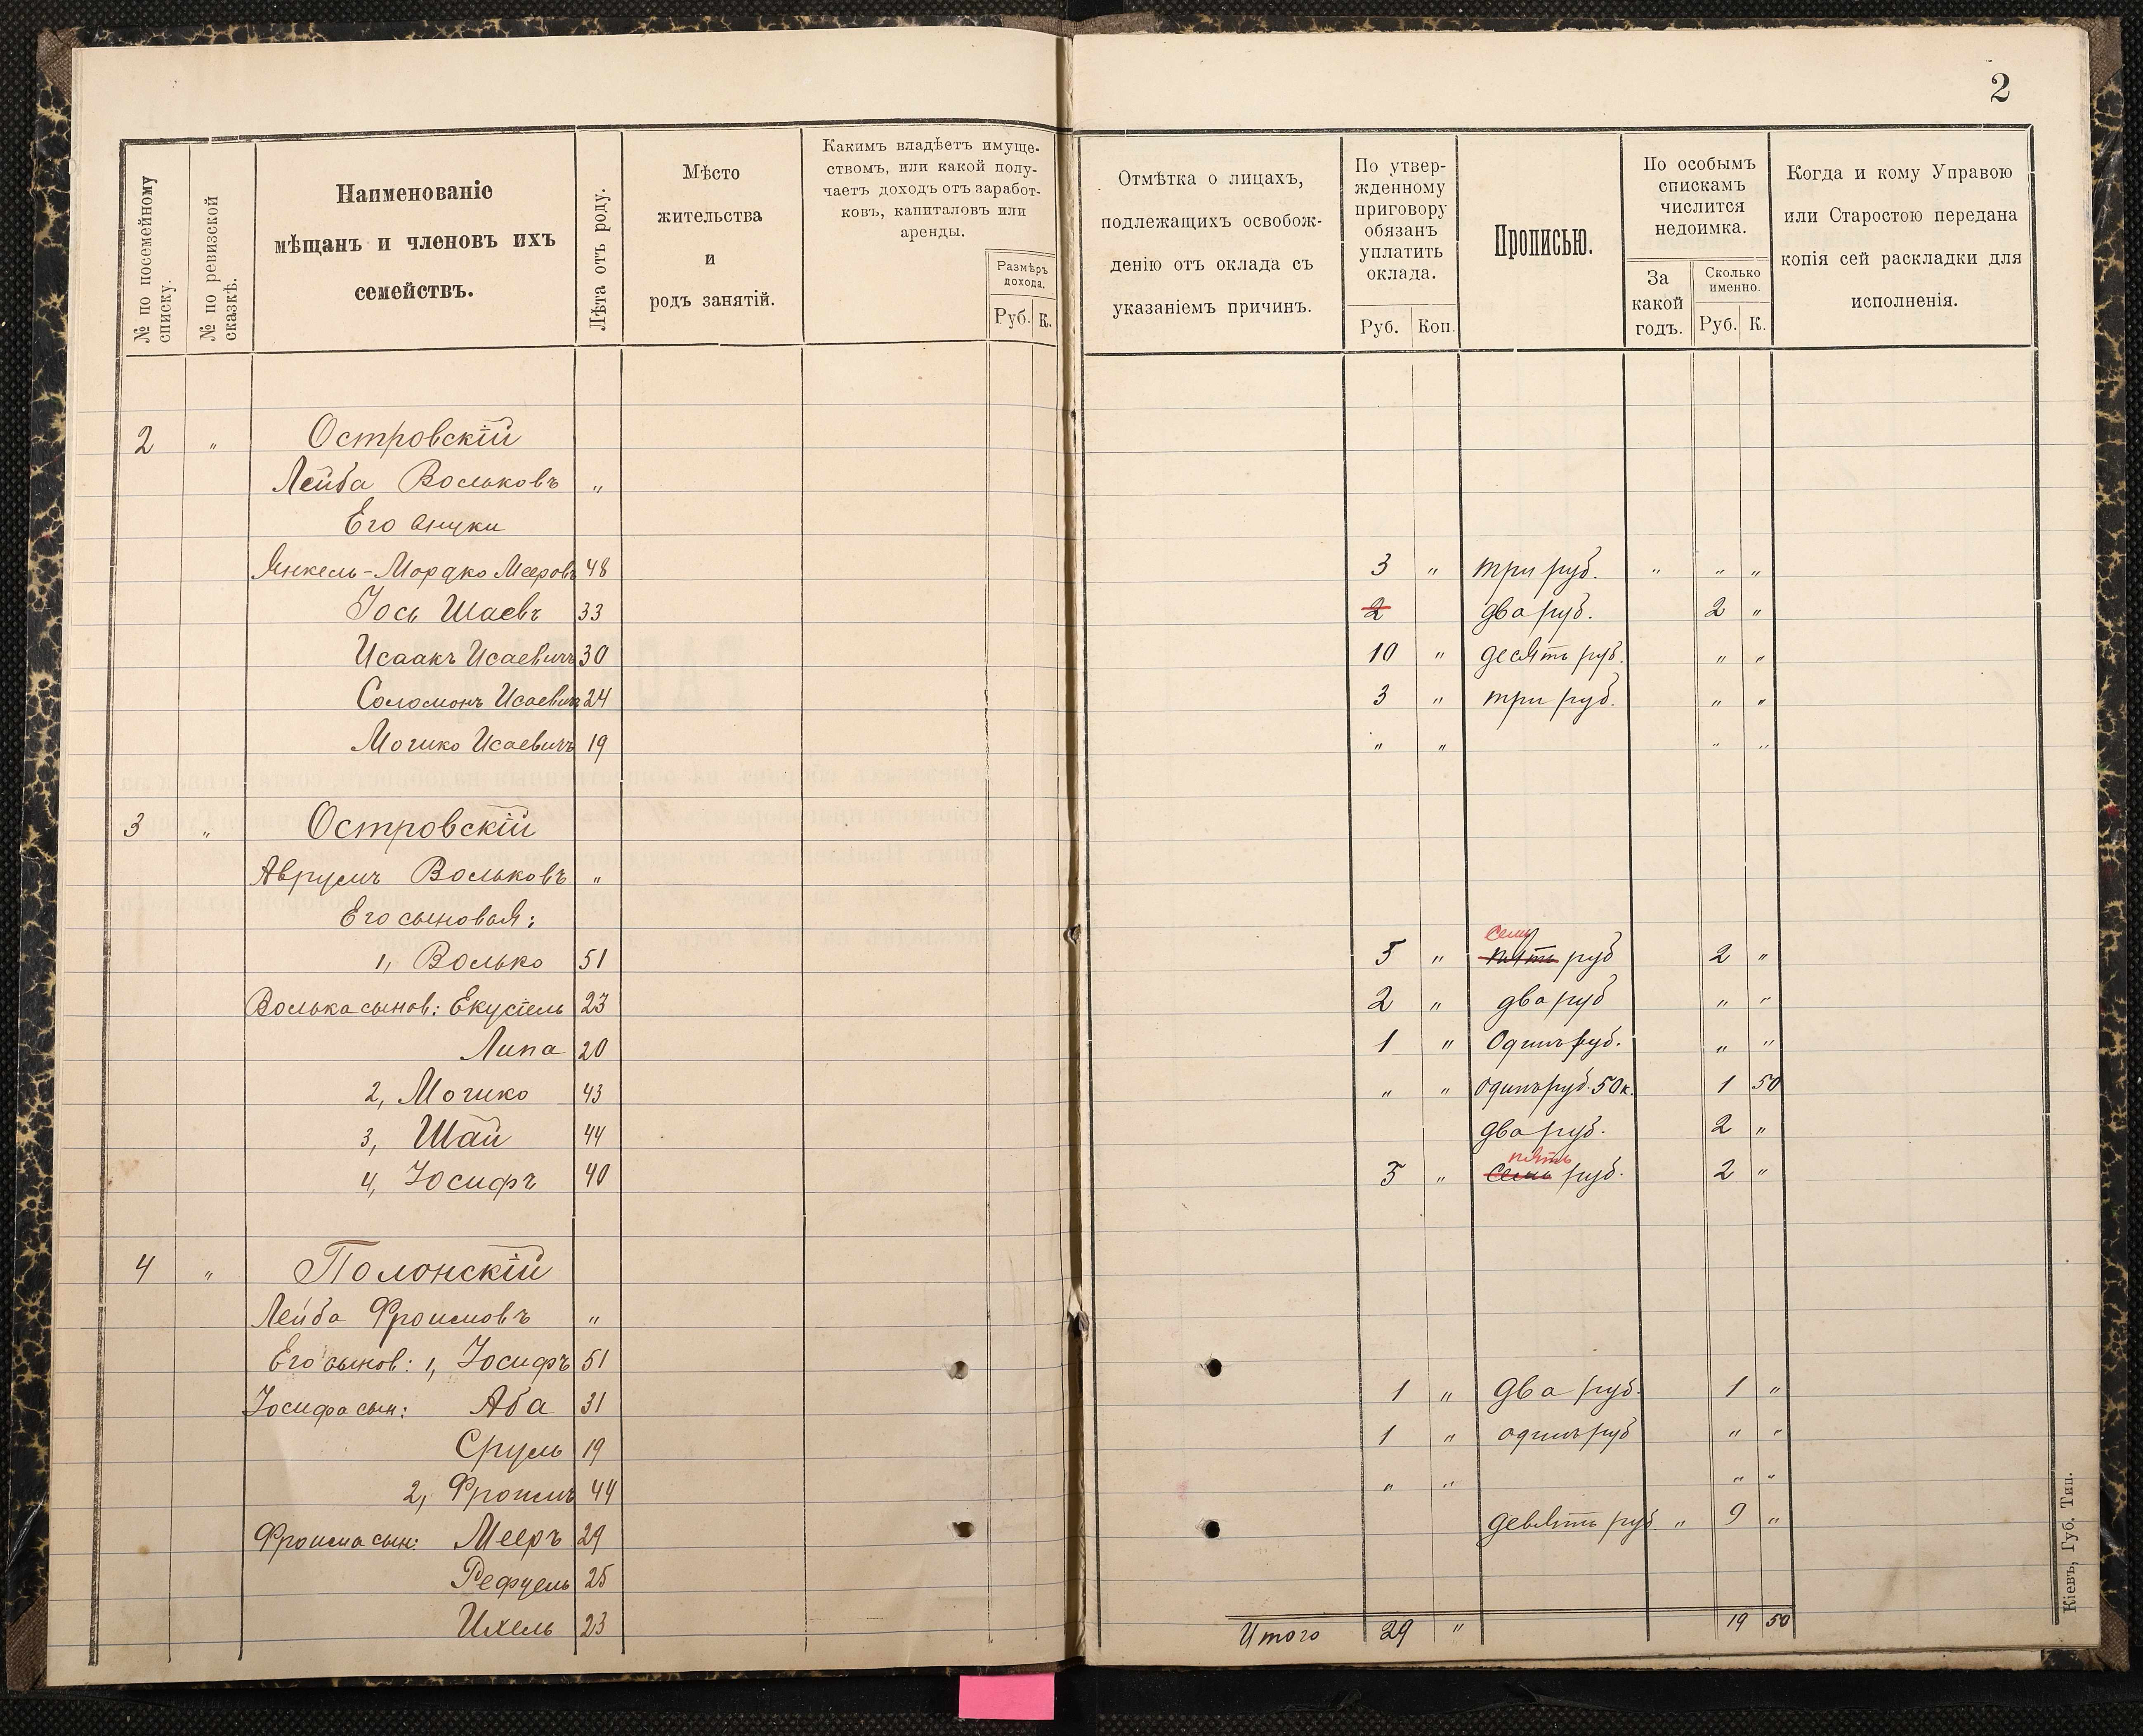 2
№ по посемейному списку.
№ по ревизской сказкѣ.
Наименованіе
мѣщанъ и членовъ ихъ
семействъ.
Лѣта отъ роду.
Мѣсто
жительства
и
родъ занятій.
Какимъ владѣетъ имуще-
ствомъ, или какой полу-
чаетъ доходъ отъ заработ-
ковъ, капиталовъ или
аренды.
Размѣръ
дохода.
Руб. К.
Отмѣтка о лицахъ,
подлежащихъ освобож-
денію отъ оклада съ
указаніемъ причинъ.
По утвер-
жденному
приговору
обязанъ
уплатить
оклада.
Руб. Коп.
Прописью.
По особымъ
спискамъ
числится
недоимка.
За
какой
годъ.
Сколько
именно.
Руб. К.
Когда и кому Управою
или Старостою передана
копія сей раскладки для
исполненія.
2 " Островскій
Лейба Вольковъ "
Его внуки
Янкель-Мордко Мееровъ 48 3 " три руб. " " "
Іось Шаевъ 33 2 два руб. 2 "
Исаакъ Исаевичъ 30 10 " десять руб. " "
Соломонъ Исаевичъ 24 3 " три руб. " "
Мошко Исаевичъ 19 " " " "
3 " Островскій
Аврумъ Вольковъ "
Его сыновья:
семь
1, Волько 51 5 " пять руб 2 "
Волька сынов: Екусіель 23 2 " два руб " "
Липа 20 1 " Одинъ руб. " "
2, Мошко 43 " " одинъ руб. 50 к. 1 50
3, Шай 44 два руб. 2 "
пять
4, Іосифъ 40 5 " семь руб. 2 "
4 " Полонскій
Лейба Фроимовъ "
Его сынов: 1, Іосифъ 51 1 " два руб. 1 "
Іосифа сын: Аба 31 1 " одинъ руб " "
Сруль 19 " " " "
2, Фроимъ 44 девять руб " 9 "
Фроима сын: Мееръ 29
Рефуель 25
Ихель 23
Итого 29 " 19 50
Кіевъ, Губ. Тип.